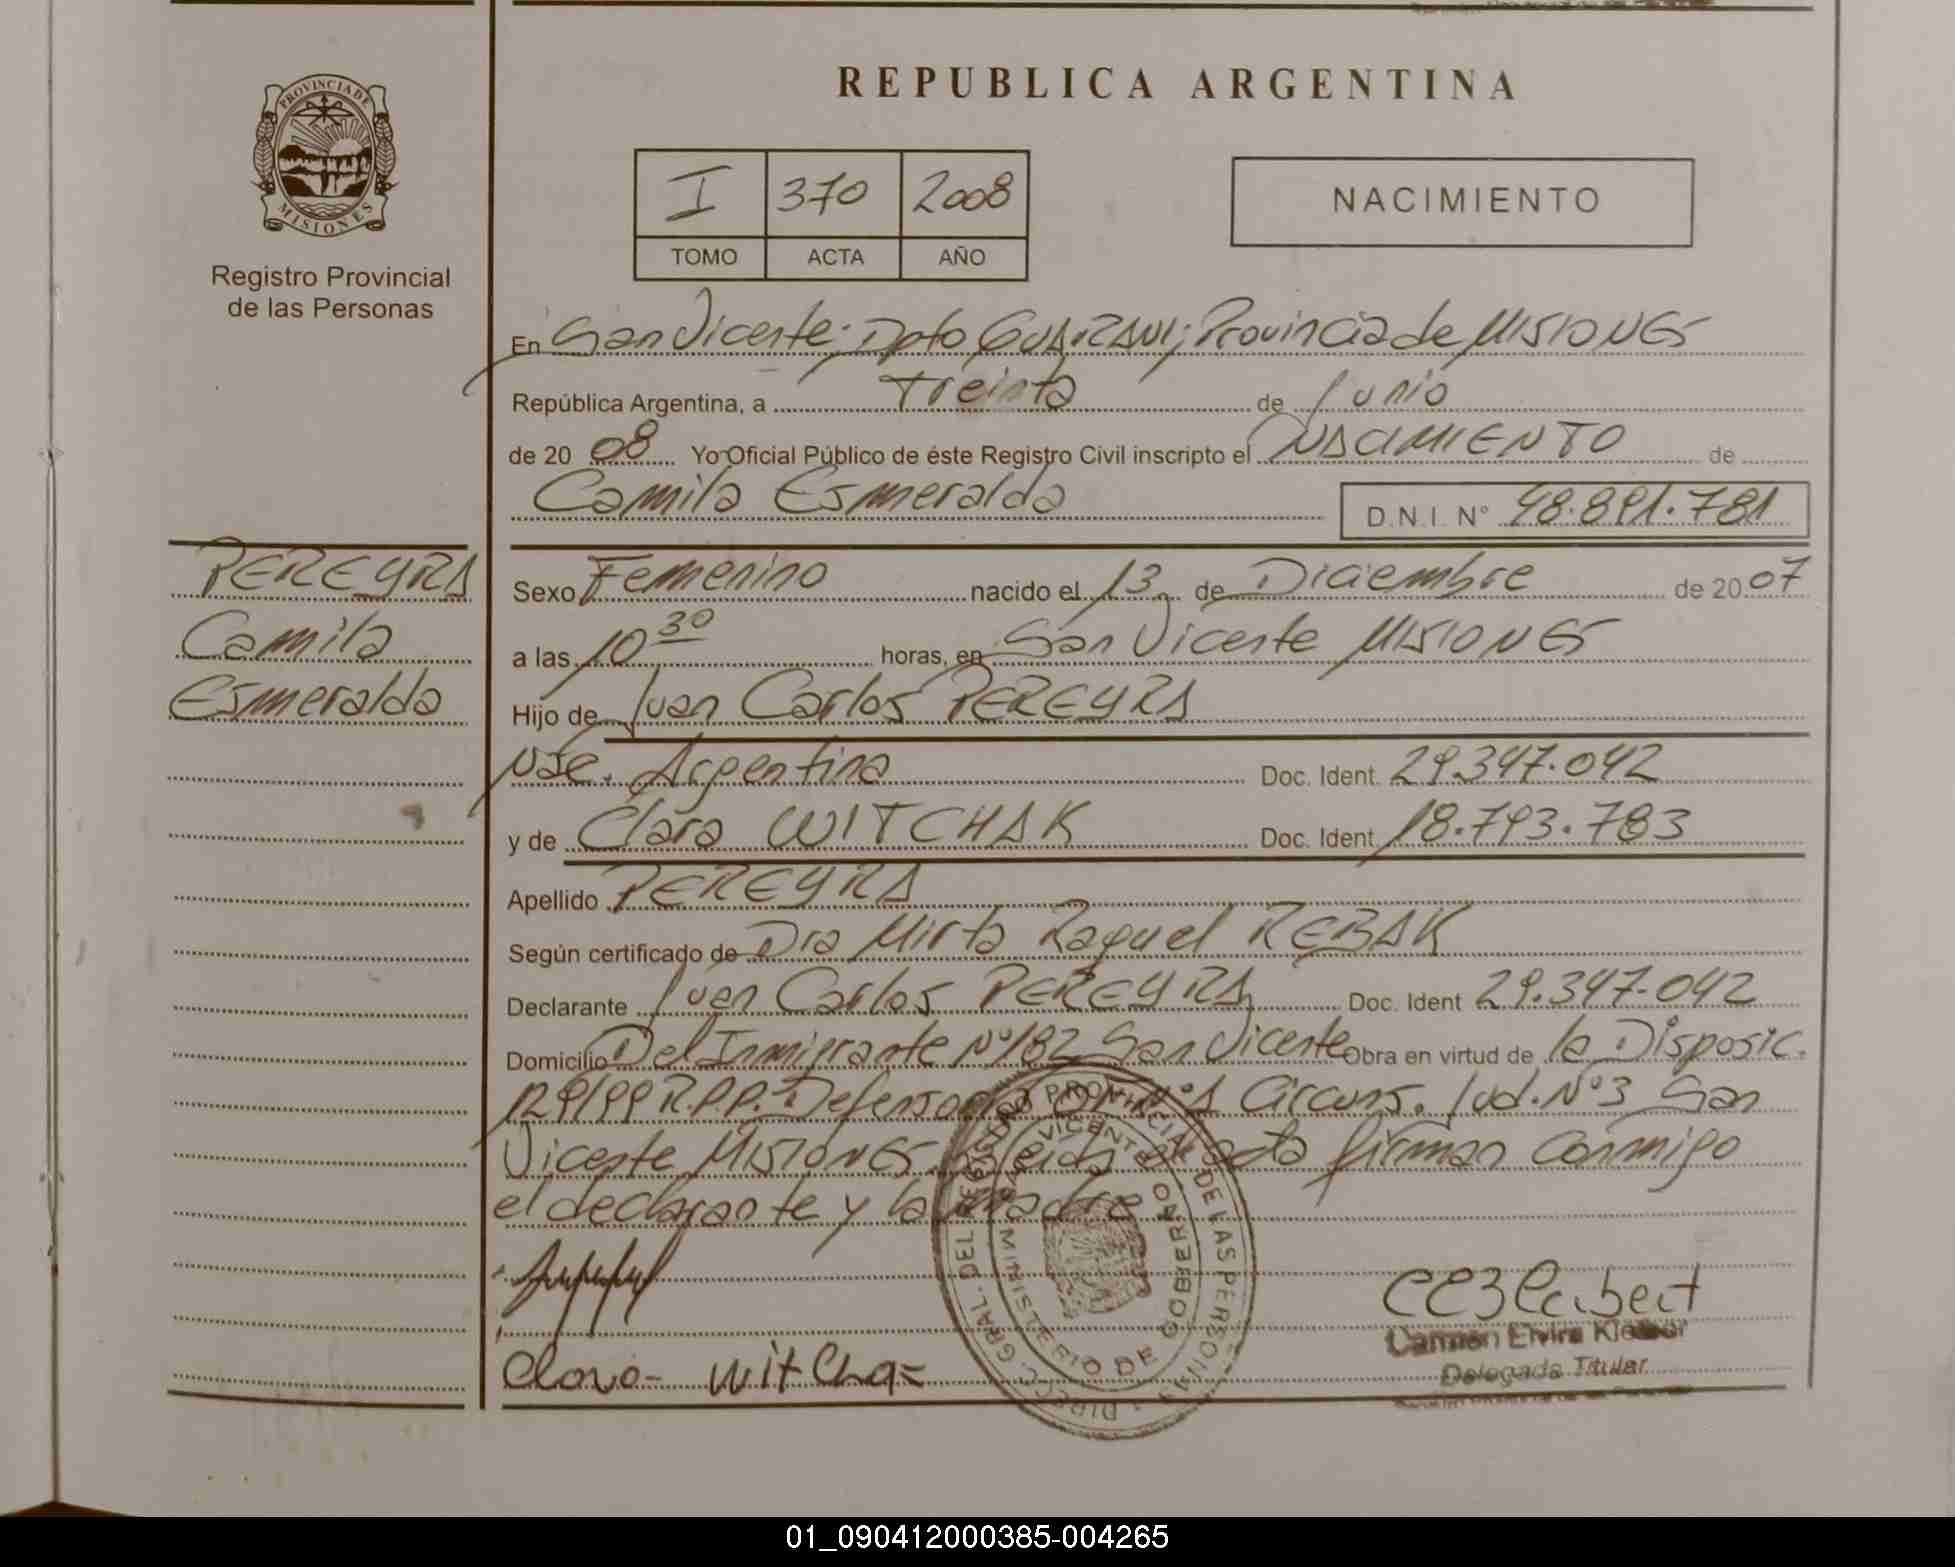 REPUBLICA ARGENTINA
PROVINCIA DE
MISIONES
Registro Provincial
de las Personas
I 370 2008
TOMO ACTA AÑO
NACIMIENTO
En San Vicente; Dpto GUARANI; Provincia de MISIONES
República Argentina, a Treinta de Junio
de 20 08 Yo Oficial Público de éste Registro Civil inscripto el NACIMIENTO de
Camila Esmeralda D.N.I. N° 48.891.781
PEREYRA
Camila
Esmeralda
Sexo Femenino nacido el 13 de Diciembre de 20 07
a las 10 30 horas, en San Vicente MISIONES
Hijo de Juan Carlos PEREYRA
Nac. Argentina Doc. Ident. 29.347.042
y de Clara WITCHAK Doc. Ident 18.793.783
Apellido PEREYRA
Según certificado de Dra Mirta Raquel REBAK
Declarante Juan Carlos PEREYRA Doc. Ident 29.347.042
Domicilio Del Inmigrante N°182 San Vicente Obra en virtud de la Disposic.
129/99 R.P.P. Defensoria N°1 Circuns. Jud. N°3 San
Vicente MISIONES. Leida el acta firman conmigo
el declarante y la madre
Clara WITCHA
DIRECC. GRAL. DEL REGISTRO PROVINCIAL DE LAS PERSONAS
SAN VICENTE
MINISTERIO DE GOBIERNO
Carmen Elvira
Delegada Titular
01_090412000385-004265